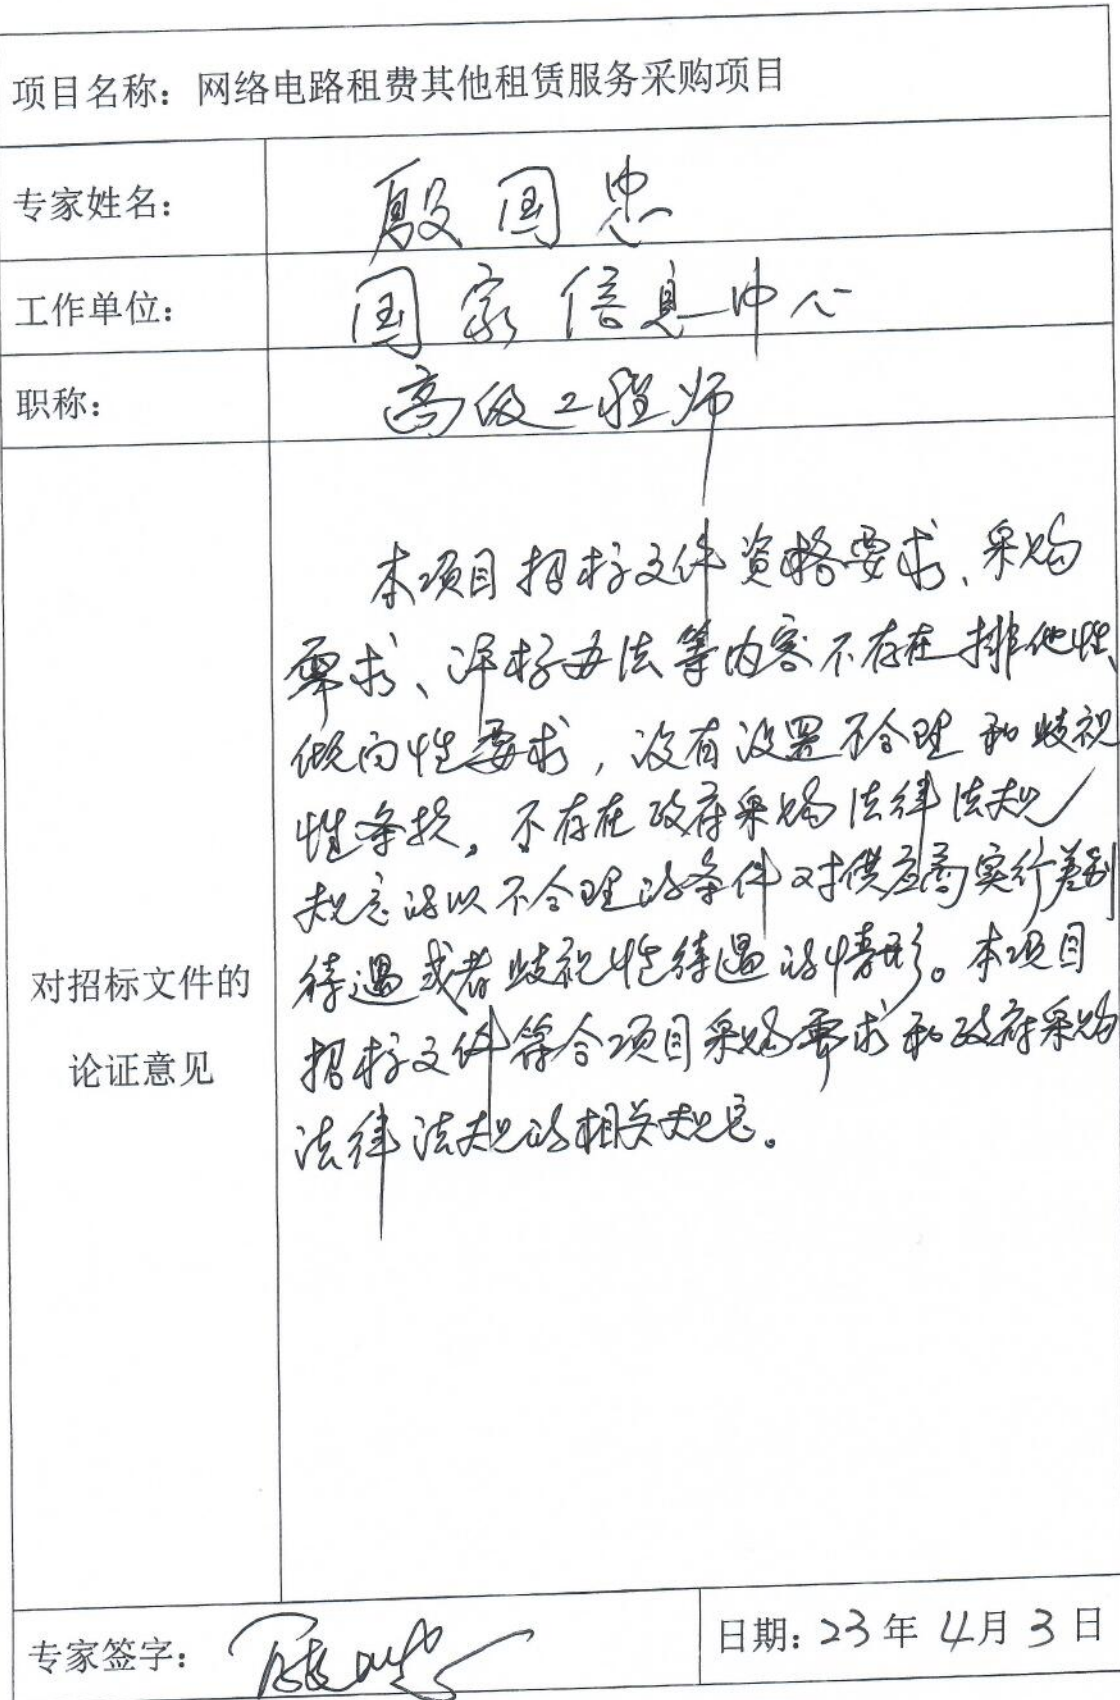 项目名称：网络电路租费其他租赁服务采购项目
专家姓名： 殷国忠
工作单位： 国家信息中心
职称： 高级工程师
对招标文件的
论证意见
本项目招标文件资格要求、采购
要求、评标办法等内容不存在排他性、
倾向性要求，没有设置不合理和歧视
性条款。不存在政府采购法律法规
规定的以不合理的条件对供应商实行差别
待遇或者歧视性待遇的情形。本项目
招标文件符合项目采购要求和政府采购
法律法规的相关规定。
专家签字： 殷国忠 日期：23年4月3日